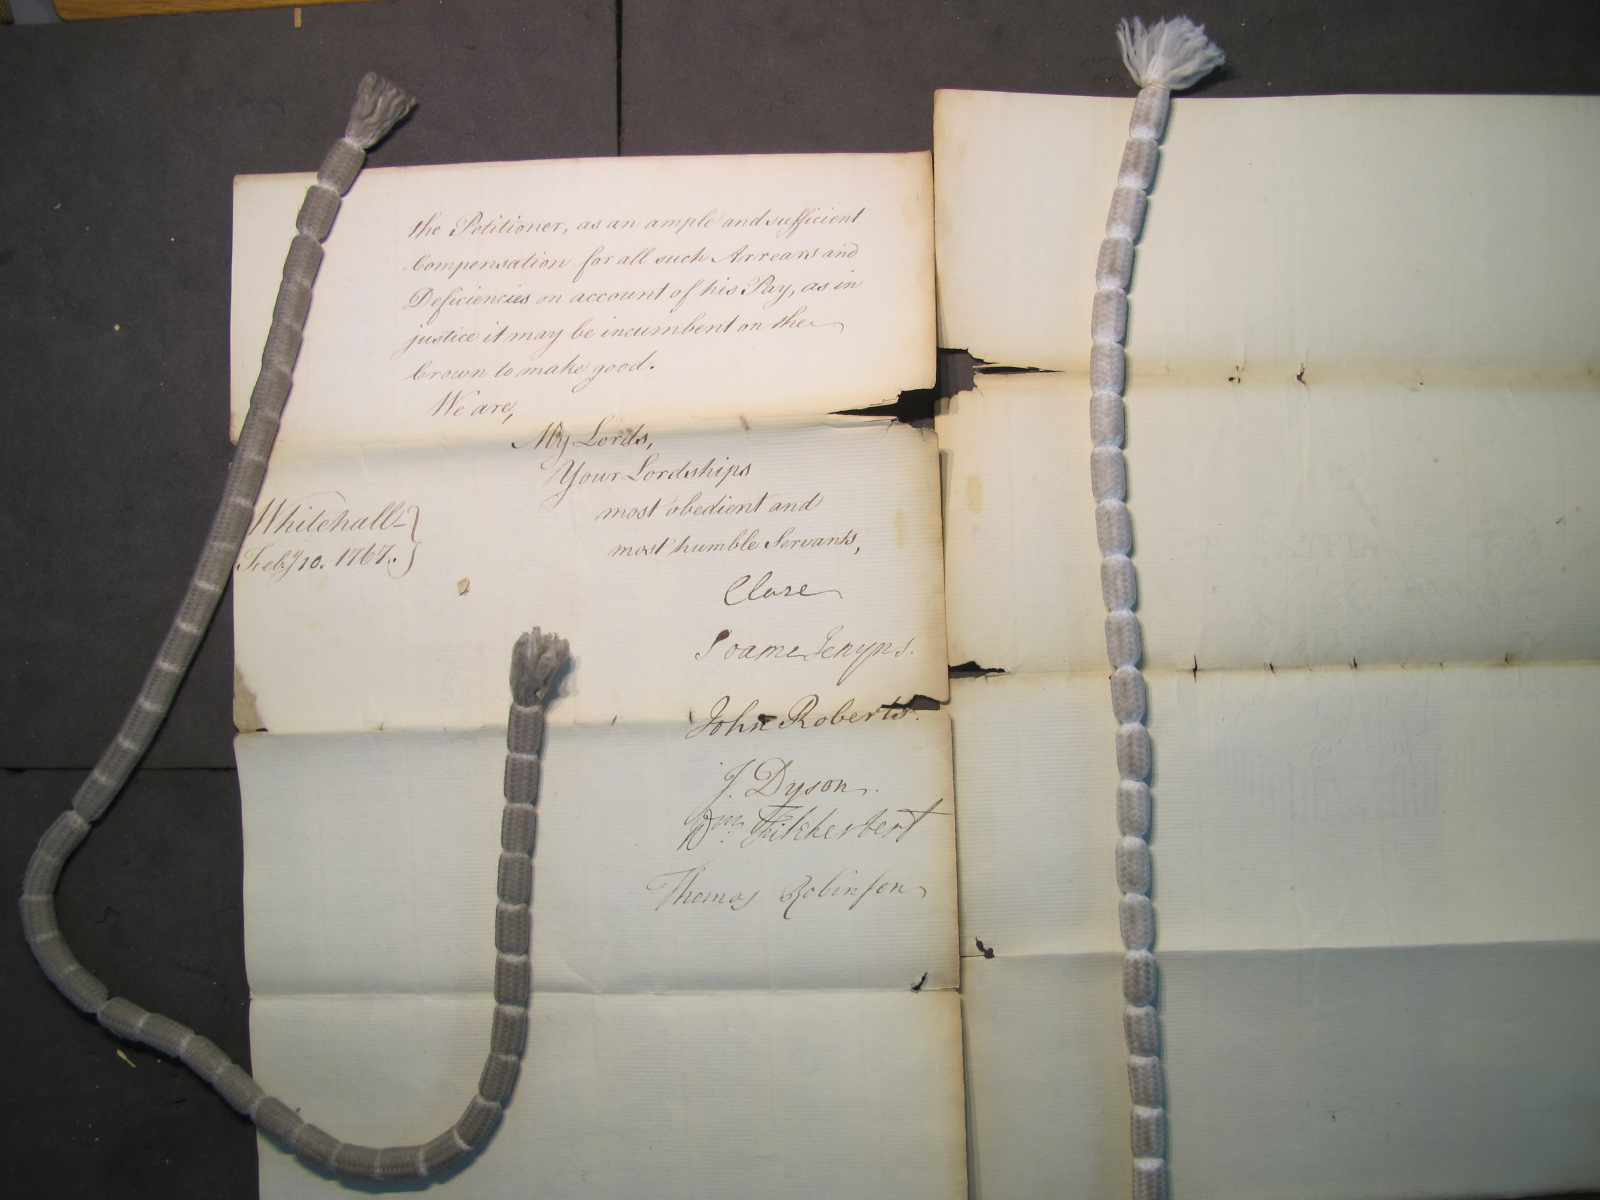 the Petitioner, as an ample and sufficient
Compensation for all such Arrears and
Deficiencies on account of his Pay, as in
justice it may be incumbent on the
Crown to make good.
We are,
My Lords,
Your Lordships
most obedient and
most humble Servants,
Whitehall
Feb.y 10. 1767.
Clare
Soame Jenyns.
John Roberts.
J. Dyson.
Wm. Fitzherbert
Thomas Robinson